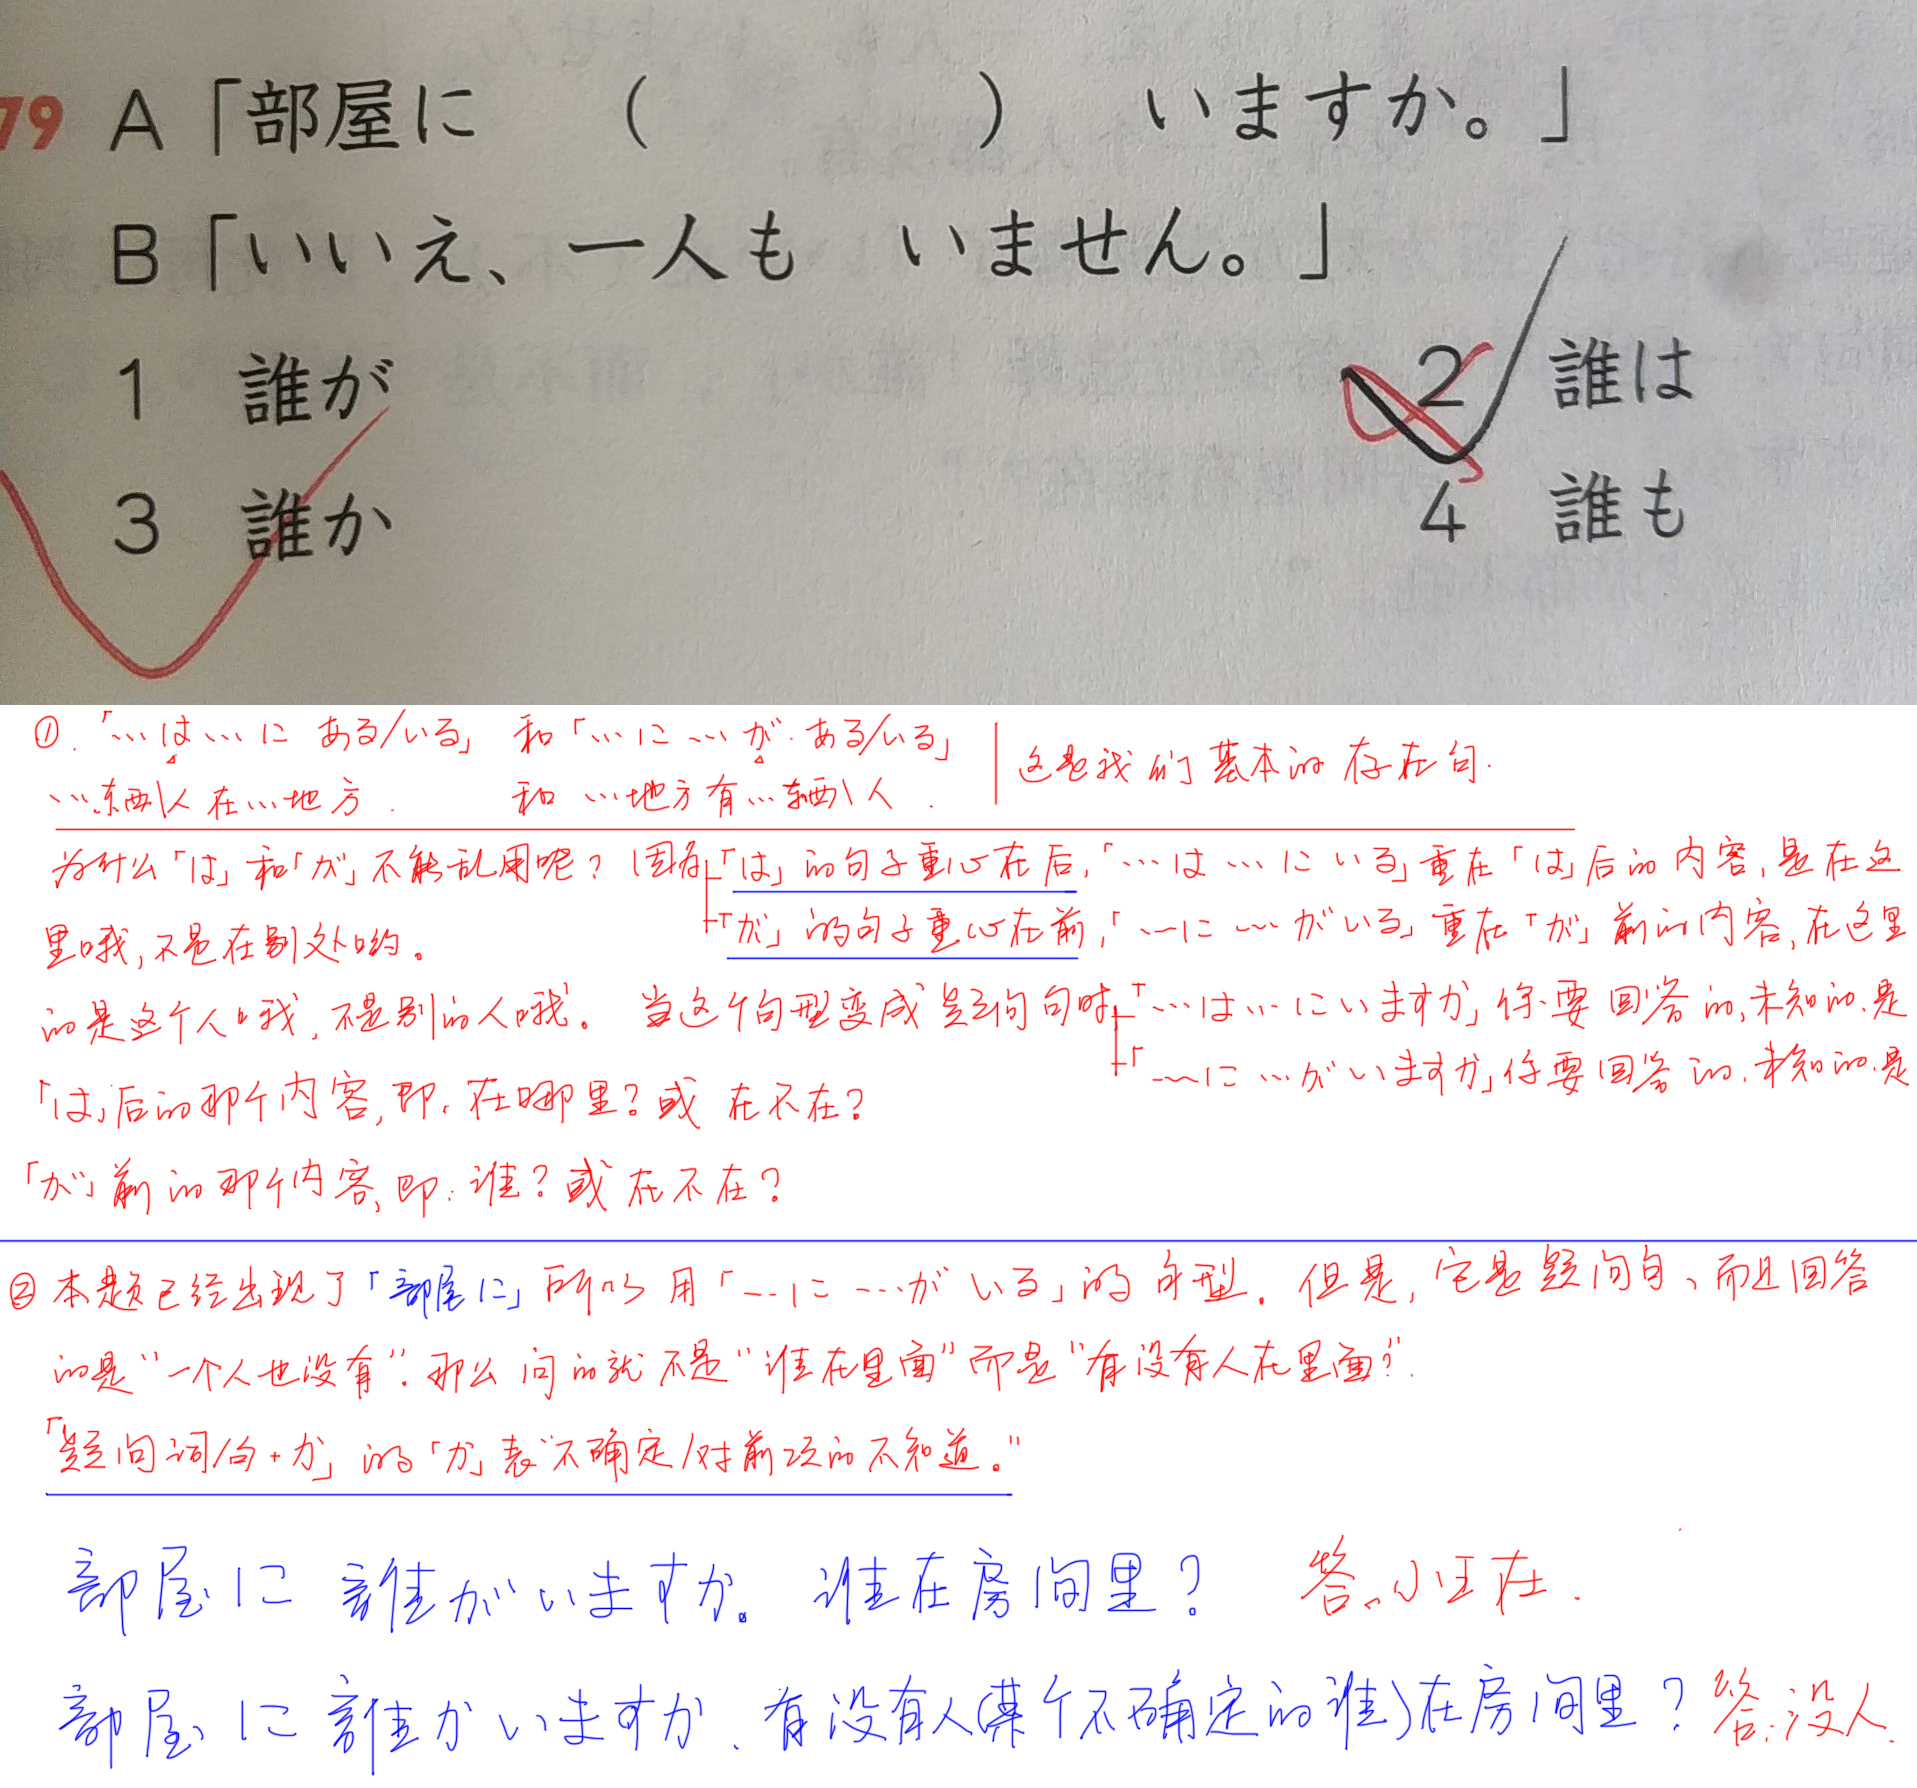 79 A「部屋に （　　　　） いますか。」
B「いいえ、一人も いません。」
1 誰が 2 誰は
3 誰か 4 誰も
①.「…は…に ある/いる」 和「…に…が.ある/いる」 这是我们基本的存在句.
…东西\人在…地方. 和 …地方有…东西\人.
为什么「は」和「が」不能乱用呢？因为「は」的句子重心在后,「…は…にいる」重在「は」后的内容,是在这
里哦,不是在别处哟。 「が」的句子重心在前,「…に…がいる」重在「が」前的内容,在这里
的是这个人哦,不是别的人哦。当这个句型变成疑问句时「…は…にいますか」你要回答的,未知的.是
「…に…がいますか」你要回答的.未知的.是
「は」后的那个内容,即.在哪里?或 在不在?
「が」前的那个内容,即:谁?或在不在?
②本题已经出现了「部屋に」所以用「…に…がいる」的句型.但是,它是疑问句、而且回答
的是“一个人也没有”.那么问的就不是“谁在里面”而是“有没有人在里面?”.
「疑问词/句+か」的「か」表“不确定/对前项的不知道。”
部屋に 誰がいますか。 谁在房间里? 答.小王在.
部屋に誰かいますか.有没有人(某个不确定的谁)在房间里? 答:没人.